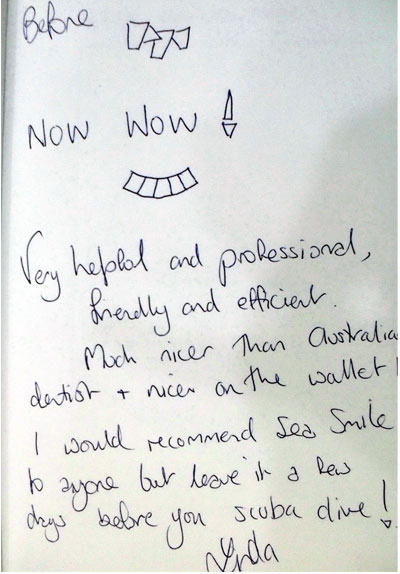 Before
NOW WOW !
Very helpful and professional,
friendly and efficient.
Much nicer than Australia
dentist + nicer on the wallet !
I would recommend Sea Smile
to anyone but leave it a few
days before you scuba dive !
Lynda